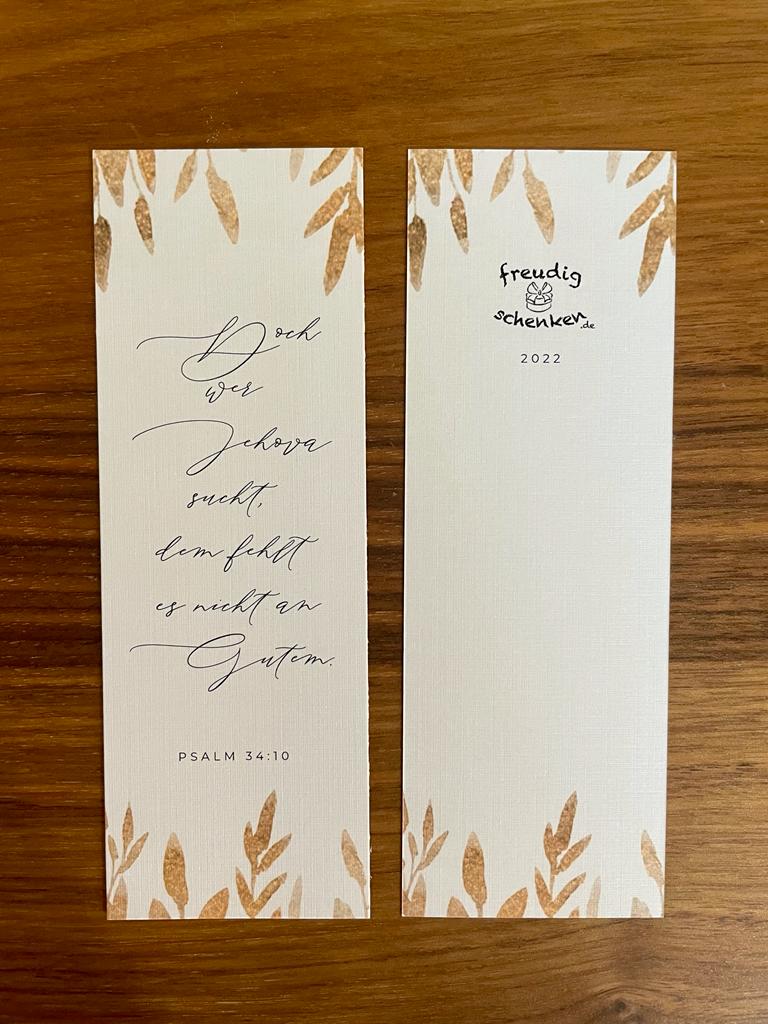 Doch
wer
Jehova
sucht,
dem fehlt
es nicht an
Gutem.
PSALM 34:10
freudig
schenken.de
2022